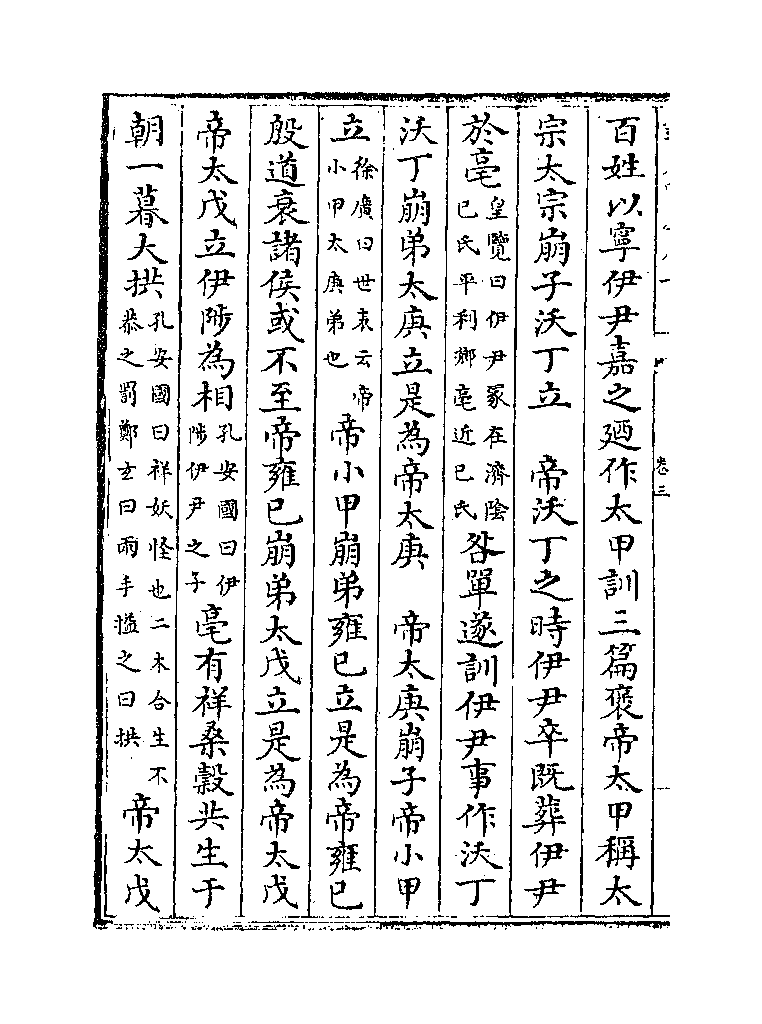 百姓以寧伊尹嘉之廼作太甲訓三篇褒帝太甲稱太
宗太宗崩子沃丁立　帝沃丁之時伊尹卒既葬伊尹
於亳皇覽曰伊尹冢在濟陰己氏平利鄉亳近己氏咎單遂訓伊尹事作沃丁
沃丁崩弟太庚立是為帝太庚　帝太庚崩子帝小甲
立徐廣曰世表云帝小甲太庚弟也帝小甲崩弟雍已立是為帝雍已
殷道衰諸侯或不至帝雍已崩弟太戊立是為帝太戊
帝太戊立伊陟為相孔安國曰伊陟伊尹之子亳有祥桑榖共生于
朝一暮大拱孔安國曰祥妖怪也二木合生不恭之罰鄭玄曰兩手搤之曰拱帝太戊
卷三